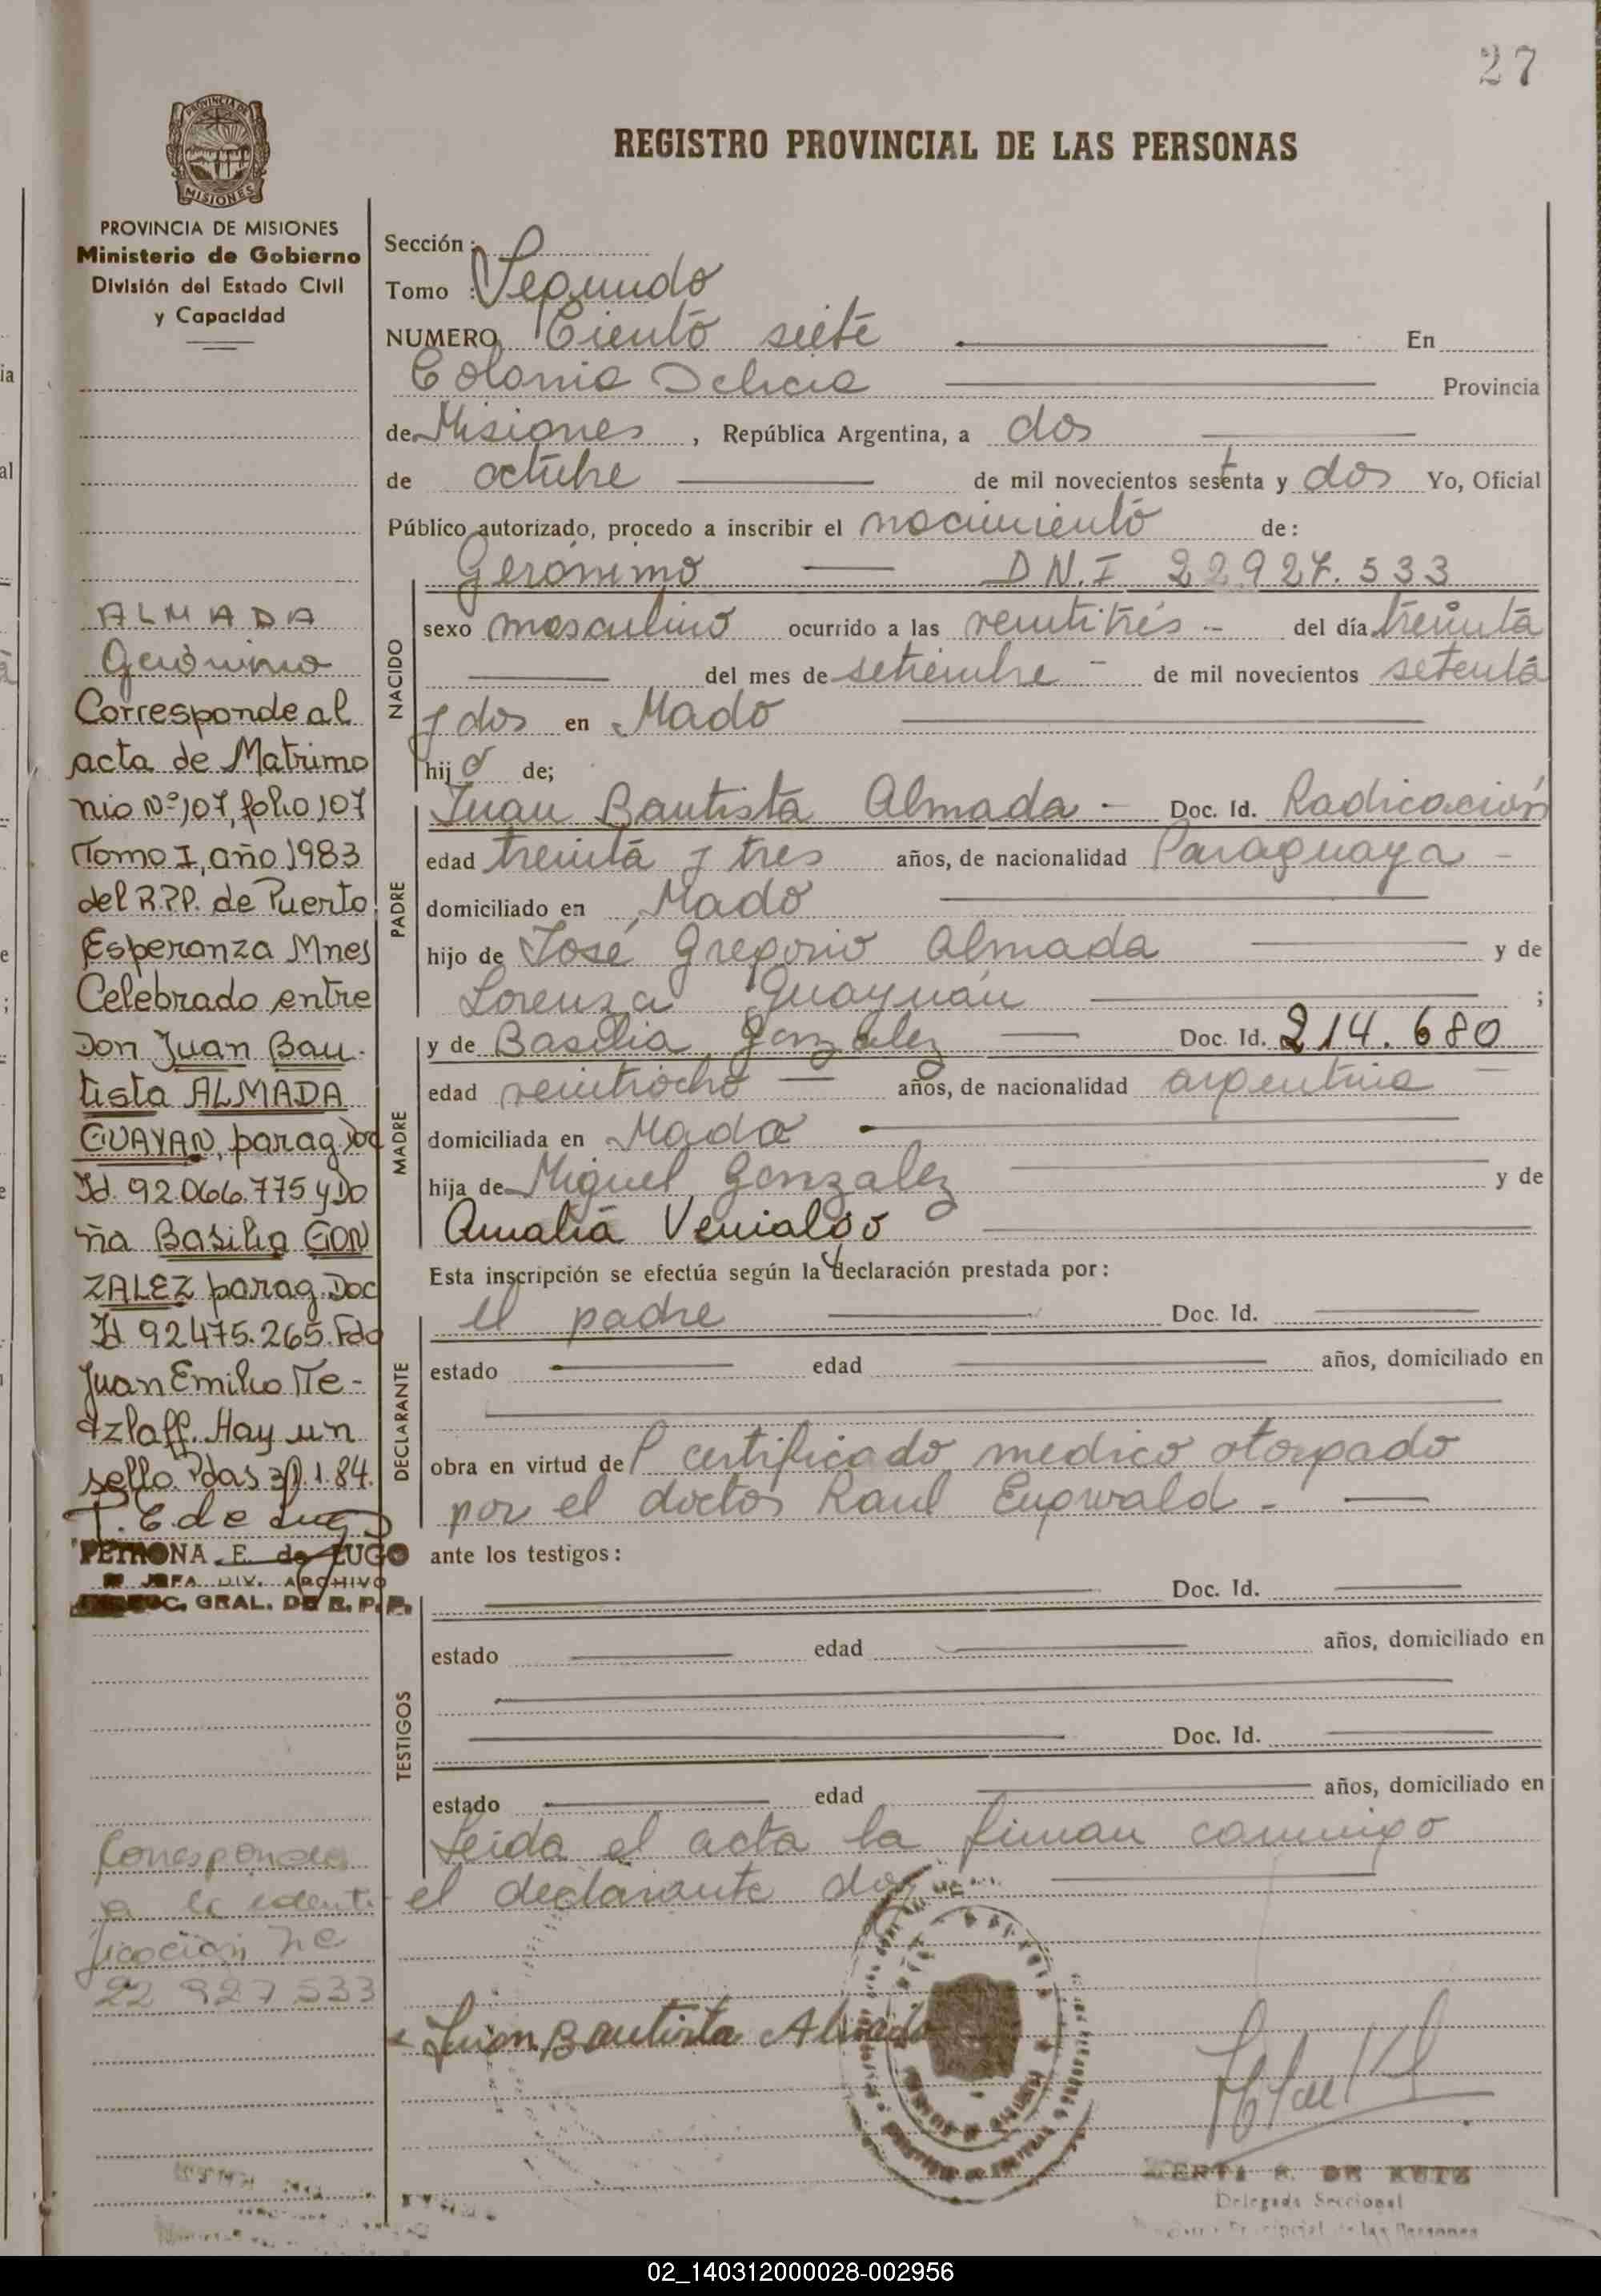 27
PROVINCIA DE
MISIONES
REGISTRO PROVINCIAL DE LAS PERSONAS
PROVINCIA DE MISIONES
Ministerio de Gobierno
División del Estado Civil
y Capacidad
Sección :
Tomo : Segundo
NUMERO Ciento siete En
Colonia Delicia Provincia
de Misiones , República Argentina, a dos
de octubre de mil novecientos sesenta y dos Yo, Oficial
Público autorizado, procedo a inscribir el nacimiento de:
Gerónimo D.N.I 22927.533
NACIDO
sexo masculino ocurrido a las veintitrés - del día treinta
del mes de setiembre - de mil novecientos setenta
y dos en Mado
hijo de;
PADRE
Juan Bautista Almada - Doc. Id. Radicación
edad treinta y tres años, de nacionalidad Paraguaya -
domiciliado en Mado
hijo de José Gregorio Almada y de
Lorenza Guayuán ;
MADRE
y de Basilia Gonzalez Doc. Id. 214.680
edad veintiocho años, de nacionalidad argentina -
domiciliada en Mado
hija de Miguel Gonzalez y de
Amalia Venialgo
Esta inscripción se efectúa según la declaración prestada por:
DECLARANTE
el padre Doc. Id.
estado edad años, domiciliado en
obra en virtud del certificado medico otorgado
por el doctor Raul Eugwald -
ante los testigos:
TESTIGOS
Doc. Id.
estado edad años, domiciliado en
Doc. Id.
estado edad años, domiciliado en
Leida el acta la firman conmigo
el declarante
Juan Bautista Almada
DE KUTZ
Delegada Seccional
de las Personas
ALMADA
Gerónimo
Corresponde al
acta de Matrimo
nio Nº 107, folio 107
Tomo I, año 1983
del R.P.P. de Puerto
Esperanza Mnes
Celebrado entre
Don Juan Bau-
tista ALMADA
GUAYAN, parag. Doc
Id. 92.066.775 y Do
ña Basilia GON
ZALEZ parag. Doc
Id 92.475.265. Fdo
Juan Emilio Te-
tzlaff. Hay un
sello. Pdas 30.1.84.
P. E de Lugo
PETRONA E. de LUGO
JEFA DIV. ARCHIVO
DIREC. GRAL. DE R. P. P.
Corresponde
a la identi
ficacion Nº
22 927 533
02_140312000028-002956